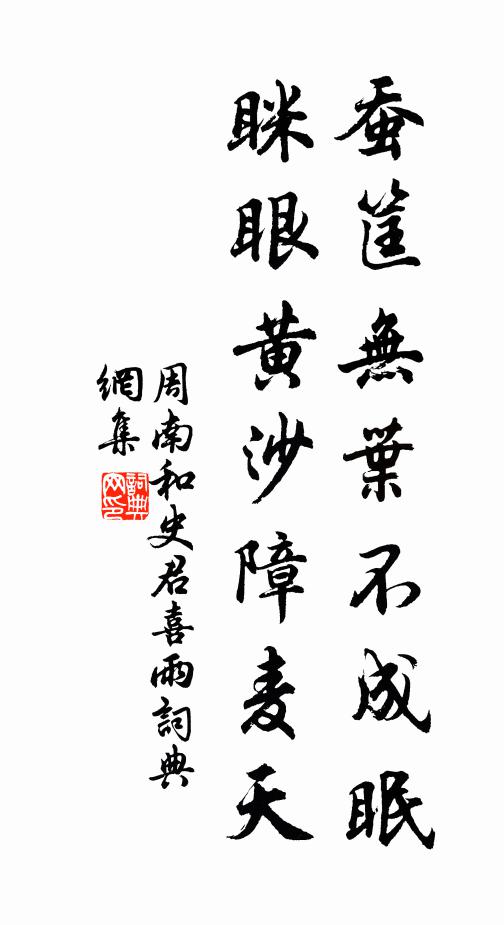 蚕筐無葉不成眠
眯眼黄沙障麦天
周南和史君喜雨詞典
網集
詞典
网印